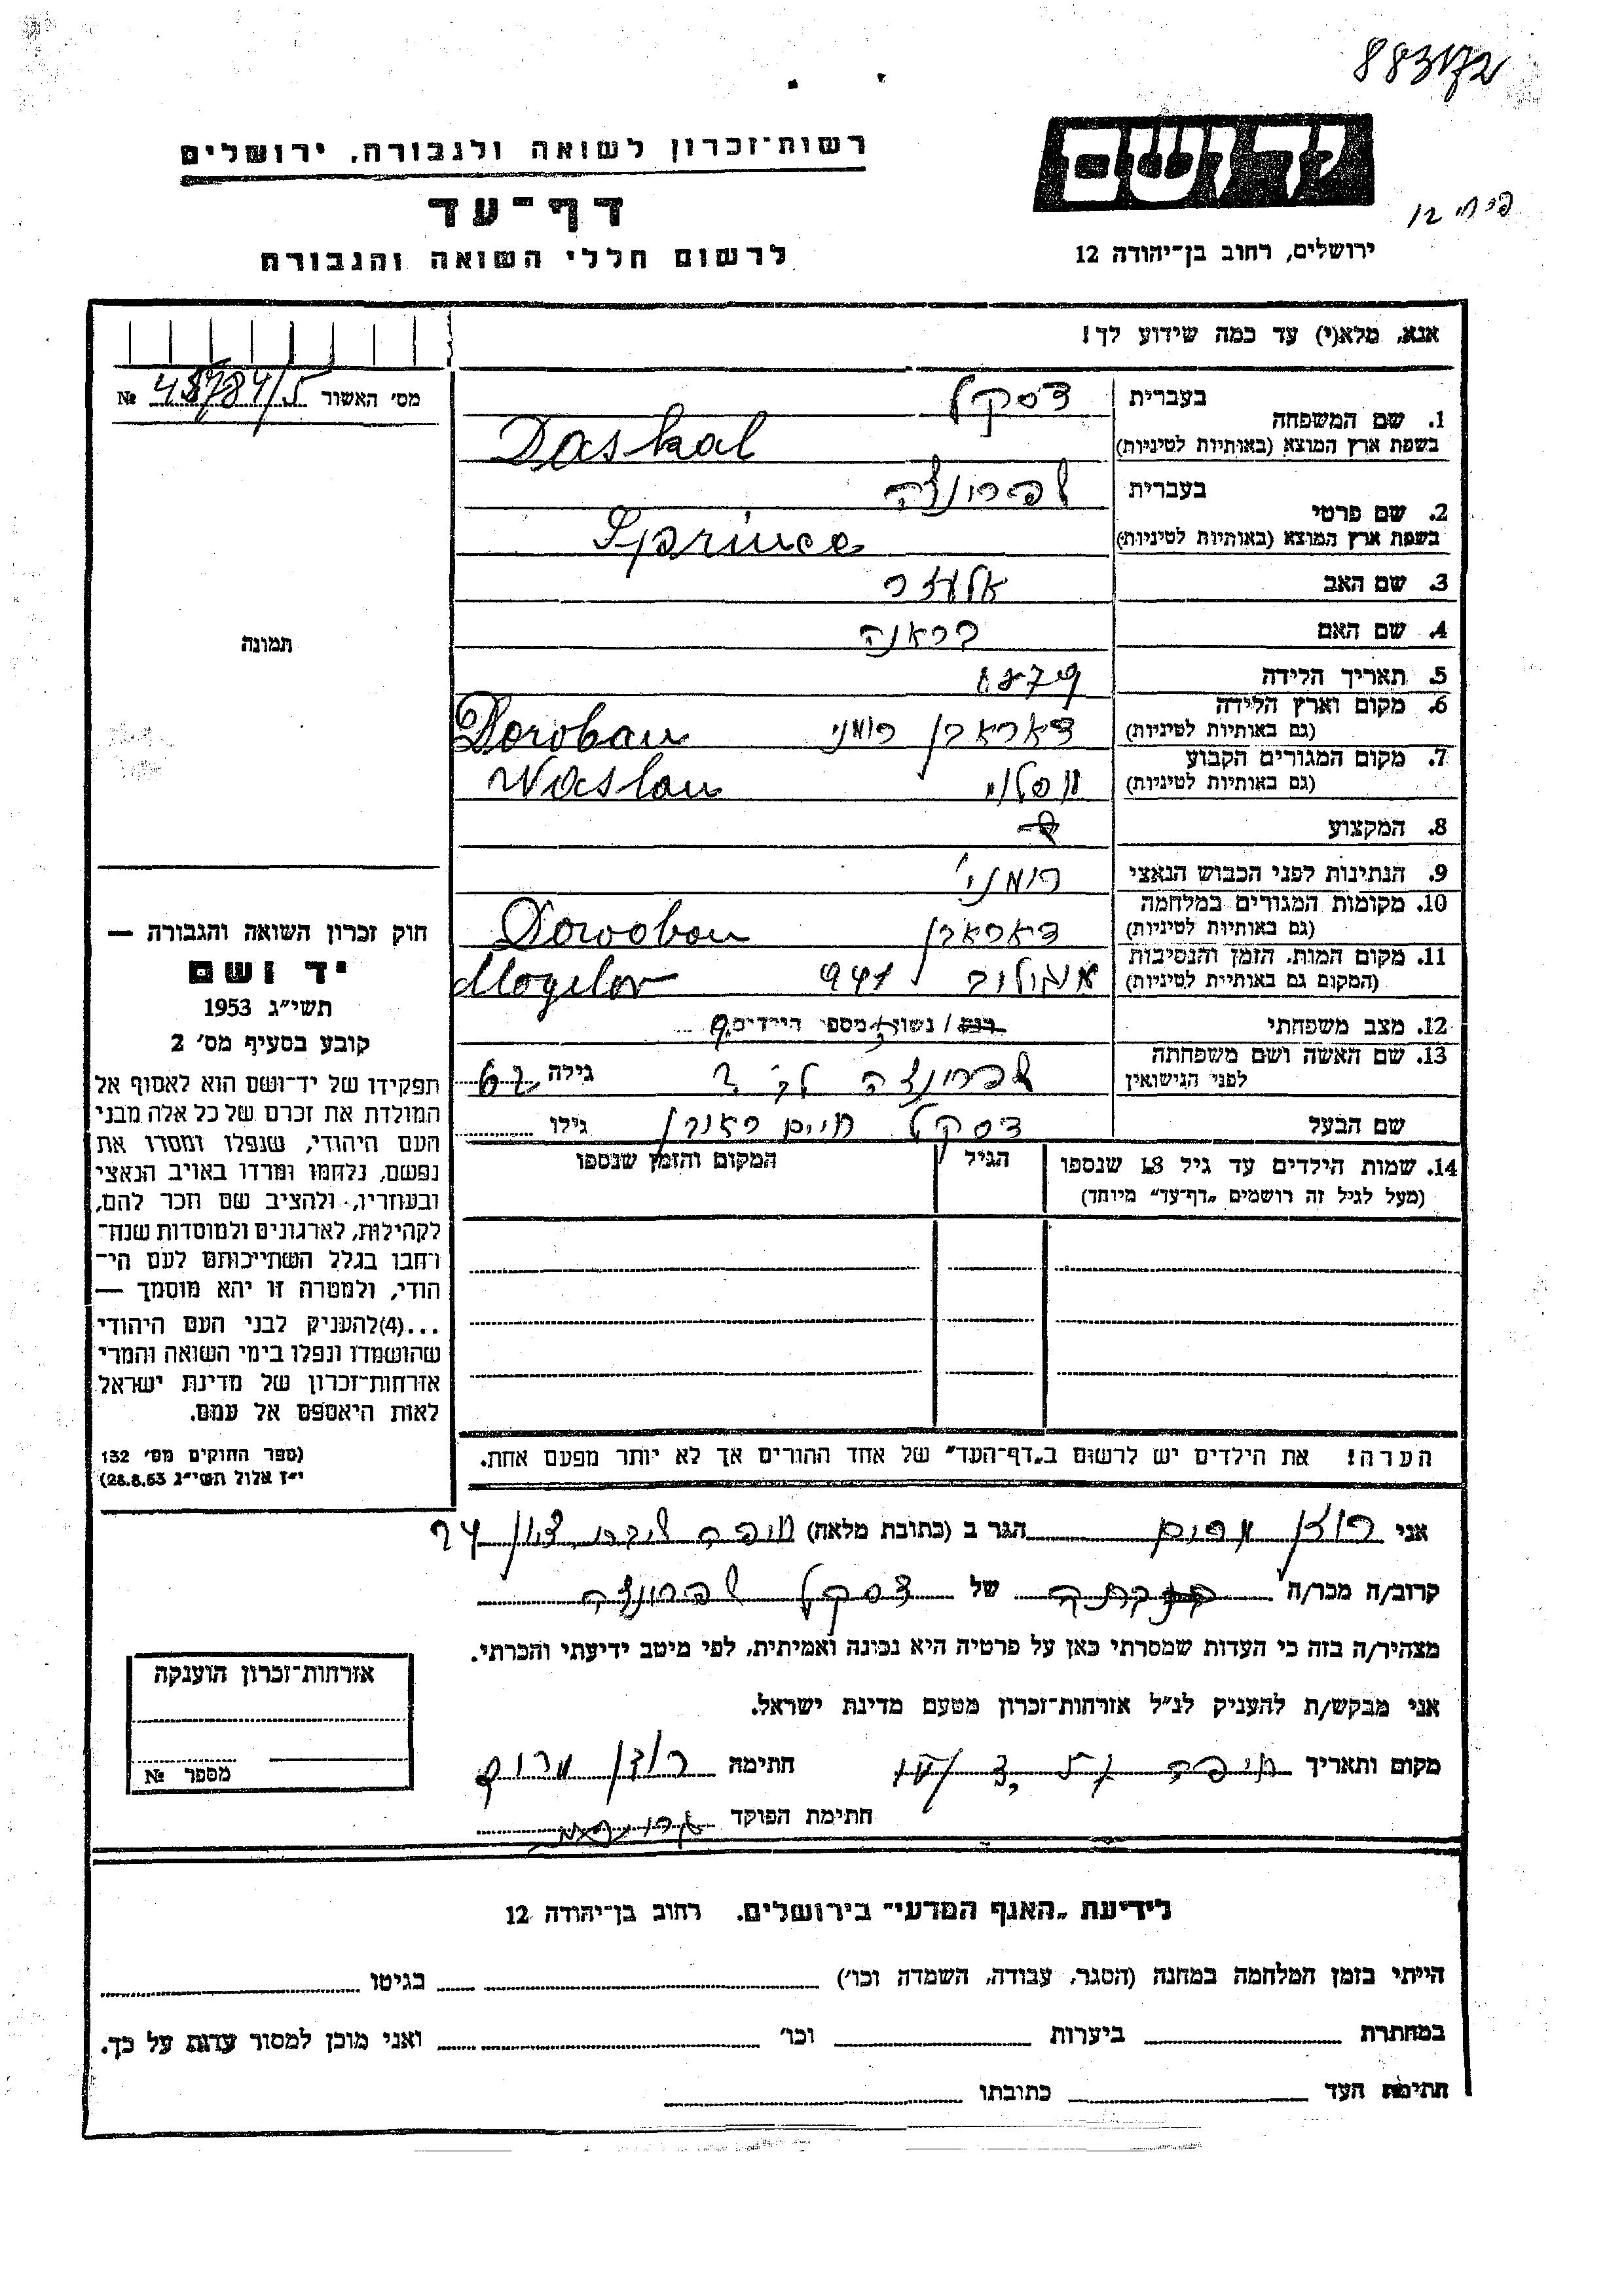 883172
רשות־זכרון לשואה ולגבורה, ירושלים
דף־עד
לרשום חללי השואה והגבורה
ידושם
ירושלים, רחוב בן־יהודה 12
אנא, מלא(י) עד כמה שידוע לך!
מס' האשור 45784/5 №
1. שם המשפחה בעברית דסקל
בשפת ארץ המוצא (באותיות לטיניות) Daskal
2. שם פרטי בעברית שפרונצה
בשפת ארץ המוצא (באותיות לטיניות) Sprince
3. שם האב אלעזר
4. שם האם בראנה
5. תאריך הלידה 1879
6. מקום וארץ הלידה
(גם באותיות לטיניות) דאראבן רומני Doroban
7. מקום המגורים הקבוע
(גם באותיות לטיניות) וסלוי Waslau
8. המקצוע
9. הנתינות לפני הכבוש הנאצי רומני'
10. מקומות המגורים במלחמה
(גם באותיות לטיניות) דאראבן Dorooban
11. מקום המות, הזמן והנסיבות
(המקום גם באותיית לטיניות) מוגילוב 941 Mogilov
12. מצב משפחתי רוק / נשוי, מספר הילדים 9
13. שם האשה ושם משפחתה
לפני הנישואין שפרונצה גילה 62
שם הבעל דסקל חיים גילו
14. שמות הילדים עד גיל 18 שנספו הגיל המקום והזמן שנספו
(מעל לגיל זה רושמים „דף־עד״ מיוחד)
הערה! את הילדים יש לרשום ב„דף־העד״ של אחד ההורים אך לא יותר מפעם אחת.
תמונה
חוק זכרון השואה והגבורה —
יד ושם
תשי״ג 1953
קובע בסעיף מס' 2
תפקידו של יד־ושם הוא לאסוף אל
המולדת את זכרם של כל אלה מבני
העם היהודי, שנפלו ומסרו את
נפשם, נלחמו ומרדו באויב הנאצי
ובעוזריו, ולהציב שם וזכר להם,
לקהילות, לארגונים ולמוסדות שנח־
רחבו בגלל השתייכותם לעם הי־
הודי, ולמטרה זו יהא מוסמך —
...(4)להעניק לבני העם היהודי
שהושמדו ונפלו בימי השואה והמרי
אזרחות־זכרון של מדינת ישראל
לאות היאספם אל עמם.
(ספר החוקים מס' 132
י״ז אלול תשי״ג 28.8.53)
אני רוזן מרים הגר ב (כתובת מלאה) חיפה
קרוב/ה מכר/ה של דסקל שפרונצה
מצהיר/ה בזה כי העדות שמסרתי כאן על פרטיה היא נכונה ואמיתית, לפי מיטב ידיעתי והכרתי.
אני מבקש/ת להעניק לנ״ל אזרחות־זכרון מטעם מדינת ישראל.
מקום ותאריך חיפה חתימה רוזן מרים
חתימת הפוקד
אזרחות־זכרון הוענקה
מספר №
לידיעת „האגף המדעי״ בירושלים, רחוב בן־יהודה 12
הייתי בזמן המלחמה במחנה (הסגר, עבודה, השמדה וכו') בגיטו
במחתרת ביערות וכו' ואני מוכן למסור עדות על כך.
חתימת העד כתובתו